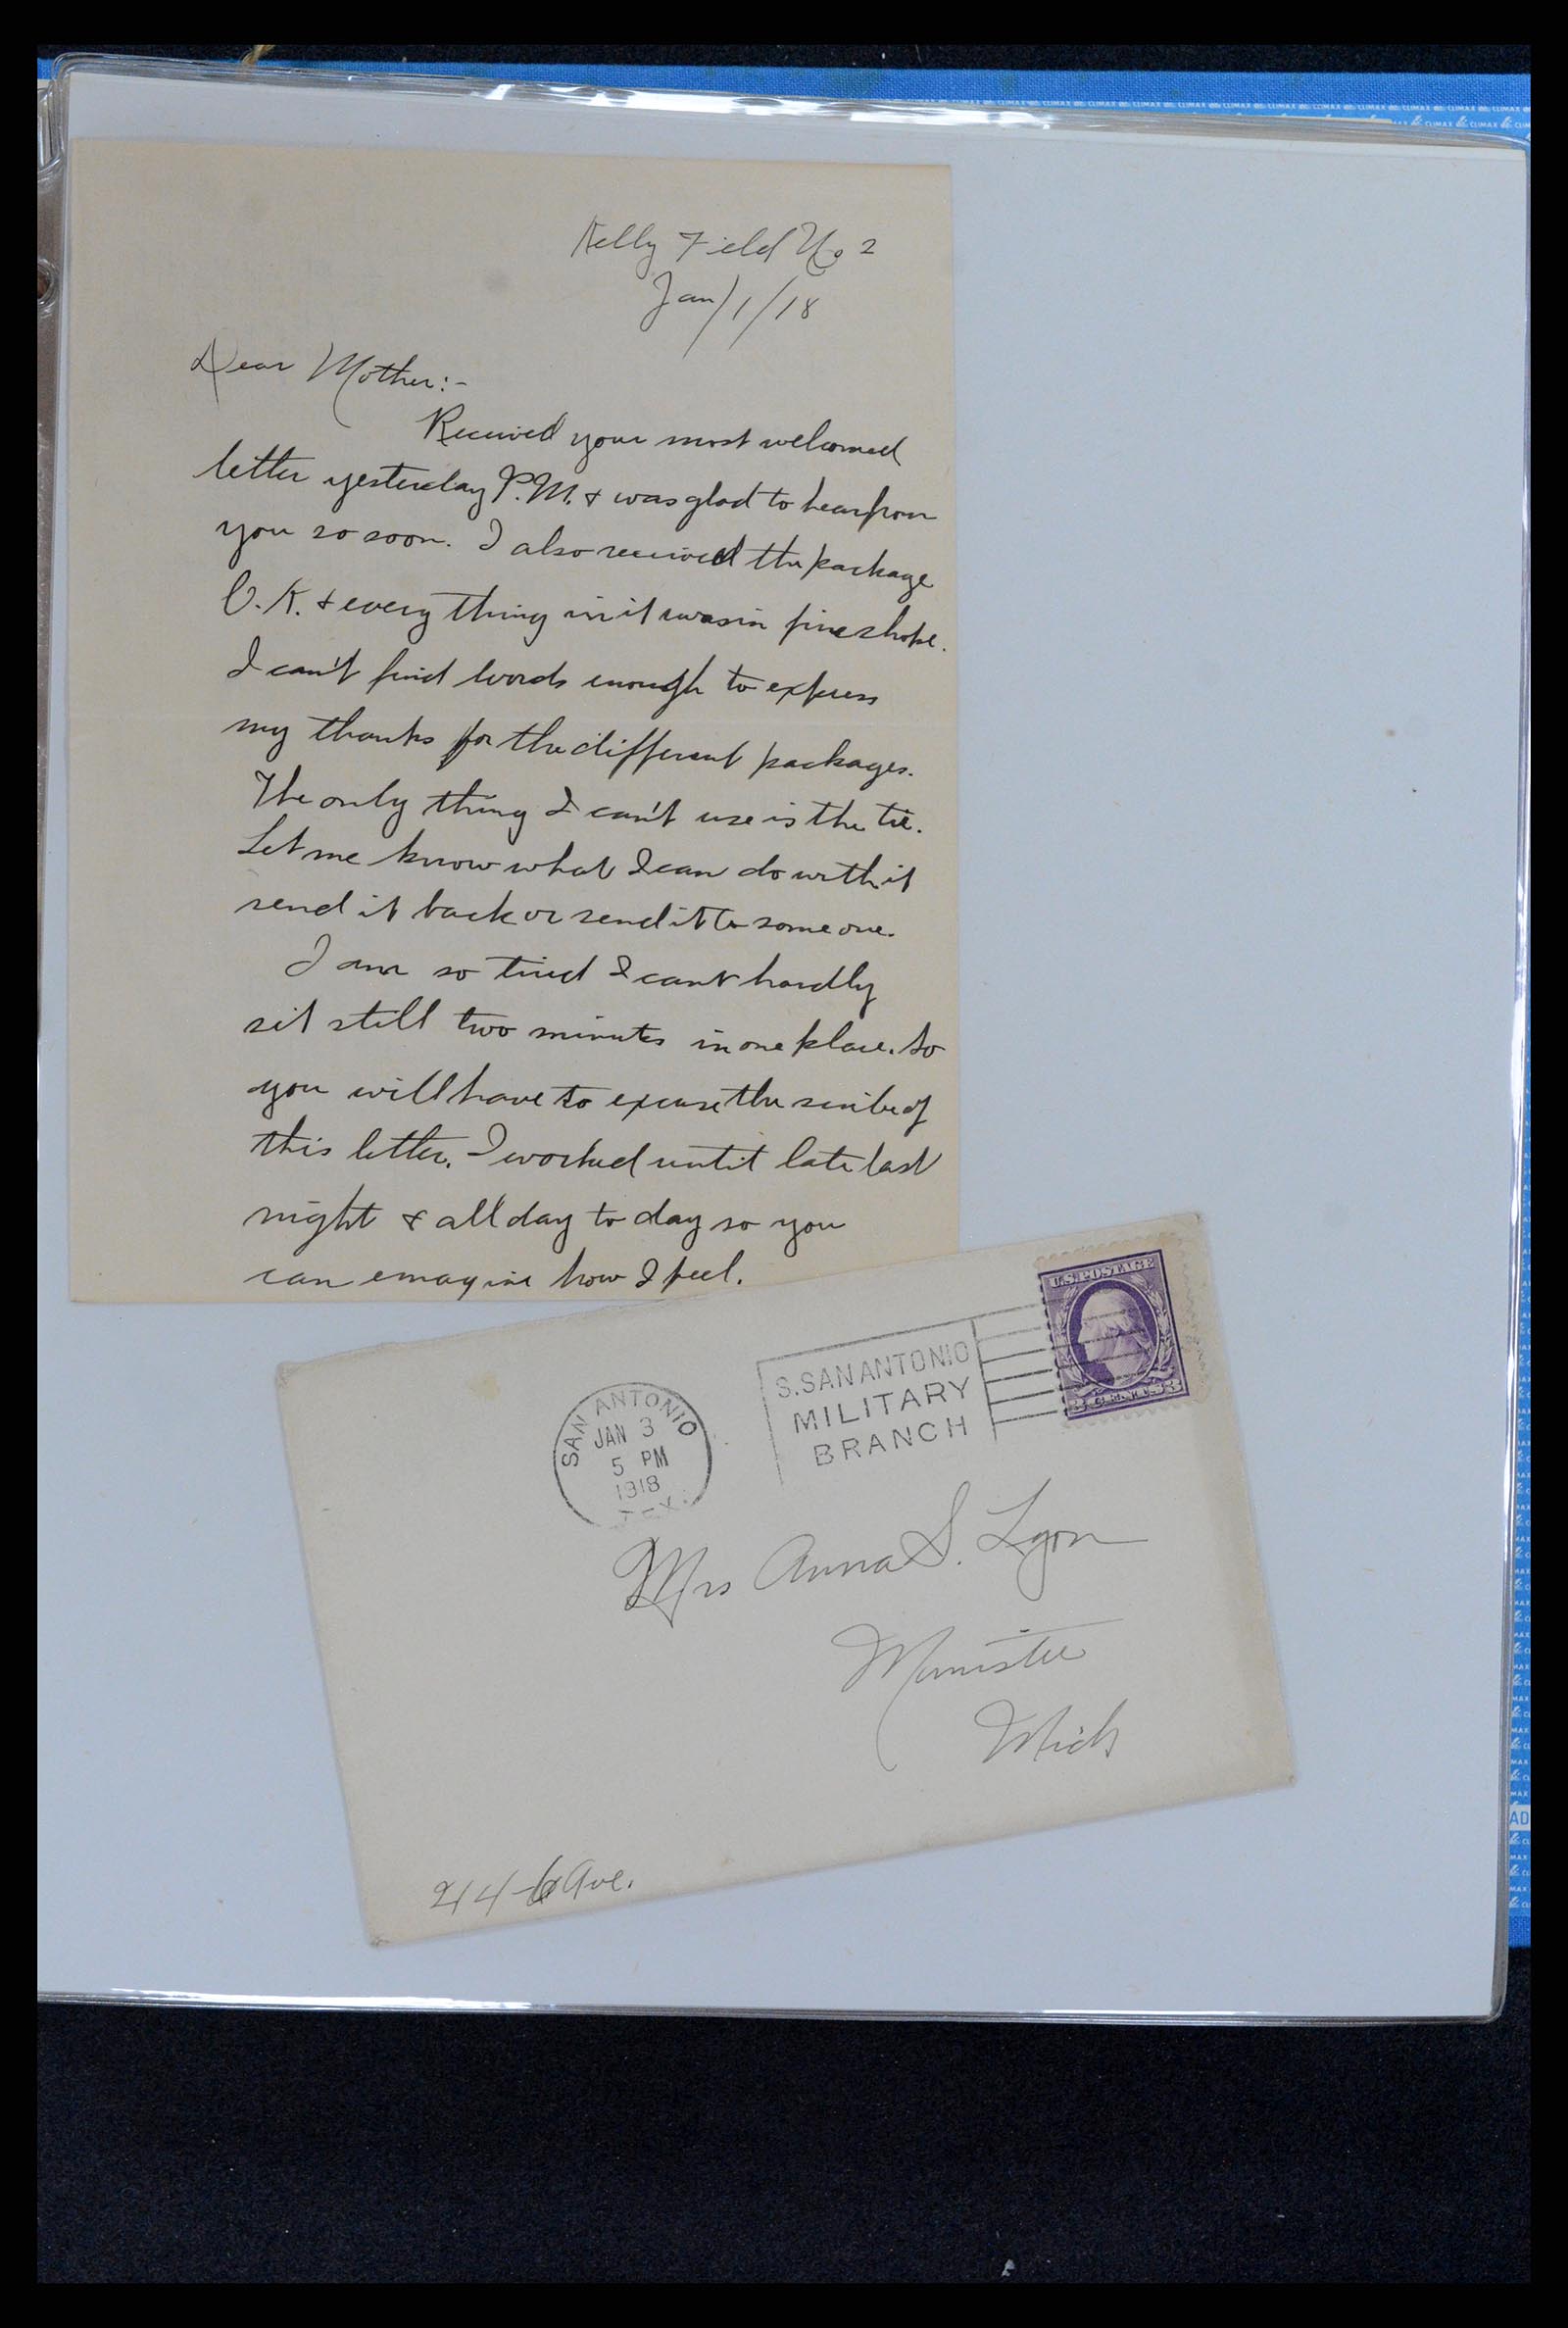 Kelly Field No 2
Jan/1/18
Dear Mother:-
Received your most welcomed
letter yesterday P.M. & was glad to hear from
you so soon. I also received the package
O.K. & every thing in it was in fine shape.
I can't find words enough to express
my thanks for the different packages.
The only thing I can't use is the tie.
Let me know what I can do with it
send it back or send it to some one.
I am so tired I cant hardly
sit still two minutes in one place. So
you will have to excuse the scribe of
this letter. I worked until late last
night & all day to day so you
can emagine how I feel.
U.S. POSTAGE
3 CENTS 3
S. SAN ANTONIO
MILITARY
BRANCH
SAN ANTONIO
JAN 3
5 PM
1918
TEX.
Mrs Anna S. Lyon
Manistee
Mich
244-6 Ave.
CLIMAX